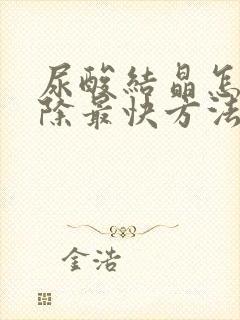 尿酸結晶怎
除最快方法
金浩